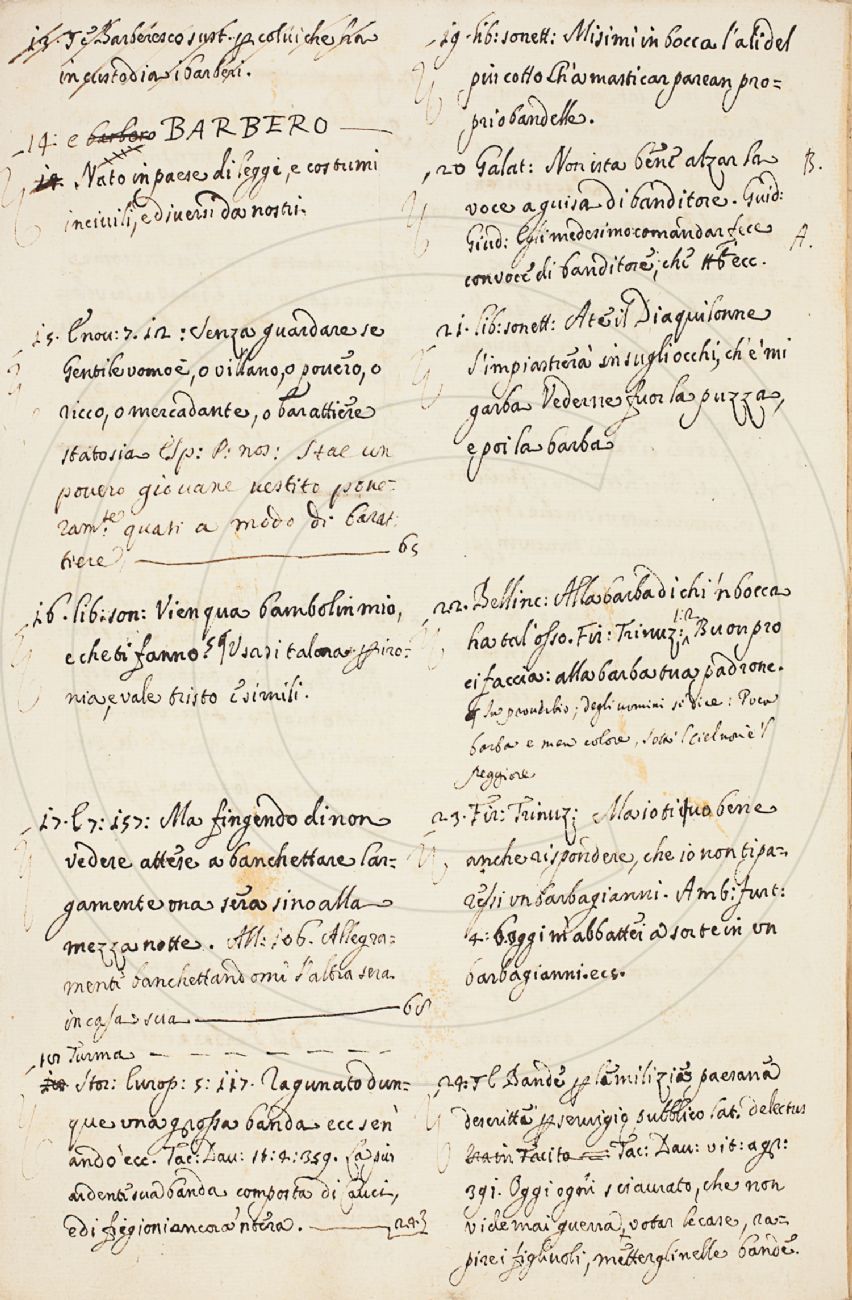 13. Te Barberesco sust. p colui che ha
in custodia i barberi.
14: e barbero BARBERO
14. Nato in paese di leggi, e costumi
inciuili, e diuersi da nostri.
15. Enou: 7. 12: Senza guardare se
Gentile uomo è, o villano, o pouero, o
ricco, o mercadante, o barattiere
stato sia Esp: P: nos: Stae un
pouero giouane uestito poue=
ram.te quasi a modo di barat:
tiere, 65
16. lib: son: Vien qua bambolin mio,
e che ti fanno? Usasi talora p iro=
nia, e vale tristo e simili.
17. E 7: 157: Ma fingendo di non
vedere attese a banchettare lar=
gamente una sera sino alla
mezza notte. All: 106. Allegra=
mente banchettandomi l'altra sera
in casa sua 68
18 Turma
Stor: Europ: 5: 117. Ragunato dun=
que una grossa banda ecc sen'
andò ecc. Tac: Dau: 18: 4: 359. La più
ardente sua banda composta di Cauci,
e di frigioni ancora 'ntera. 243
19. lib: sonett: Misimi in bocca l'ali del
piu cotto Ch'a masticar parean pro=
prio bandelle.
20 Galat: Non ista bene alzar la B.
voce a guisa di banditore. Guid:
Giud: Egli medesimo comandar fece A.
con voce di banditore, che ecc.
21. lib: sonett: Ate il Diaquilonne
S'impiastrerà in su gli occhi, ch'e' mi
garba Vederne fuor la puzza,
e poi la barba
22. Bellinc: Alla barba di chi 'n bocca
ha tal'osso. Fir: Trinuz: 1:2 Buon pro
ci faccia: alla barba tua padrone.
In prouerbio; degli uomini si dice: Poca
barba e men colore, Sotto 'l ciel non è 'l
peggiore
23. Fir: Trinuz: Ma io ti uo bene
anche rispondere, che io non ti pa=
ressi un barbagianni. Amb: furt:
4: 6 oggi m'abbattei a sorte in un
barbagianni. ecc.
24: Te Bande p la milizia paesana
descritta p seruigio pubblico lat. delectus
in Tacito Tac: Dau: vit: agr:
391. Oggi ogni sciaurato, che non
vide mai guerra, votar le case, ra=
pire i figliuoli, mettergli nelle bande.